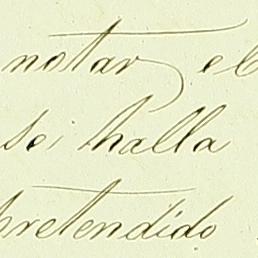 notar el
se halla
pretendido